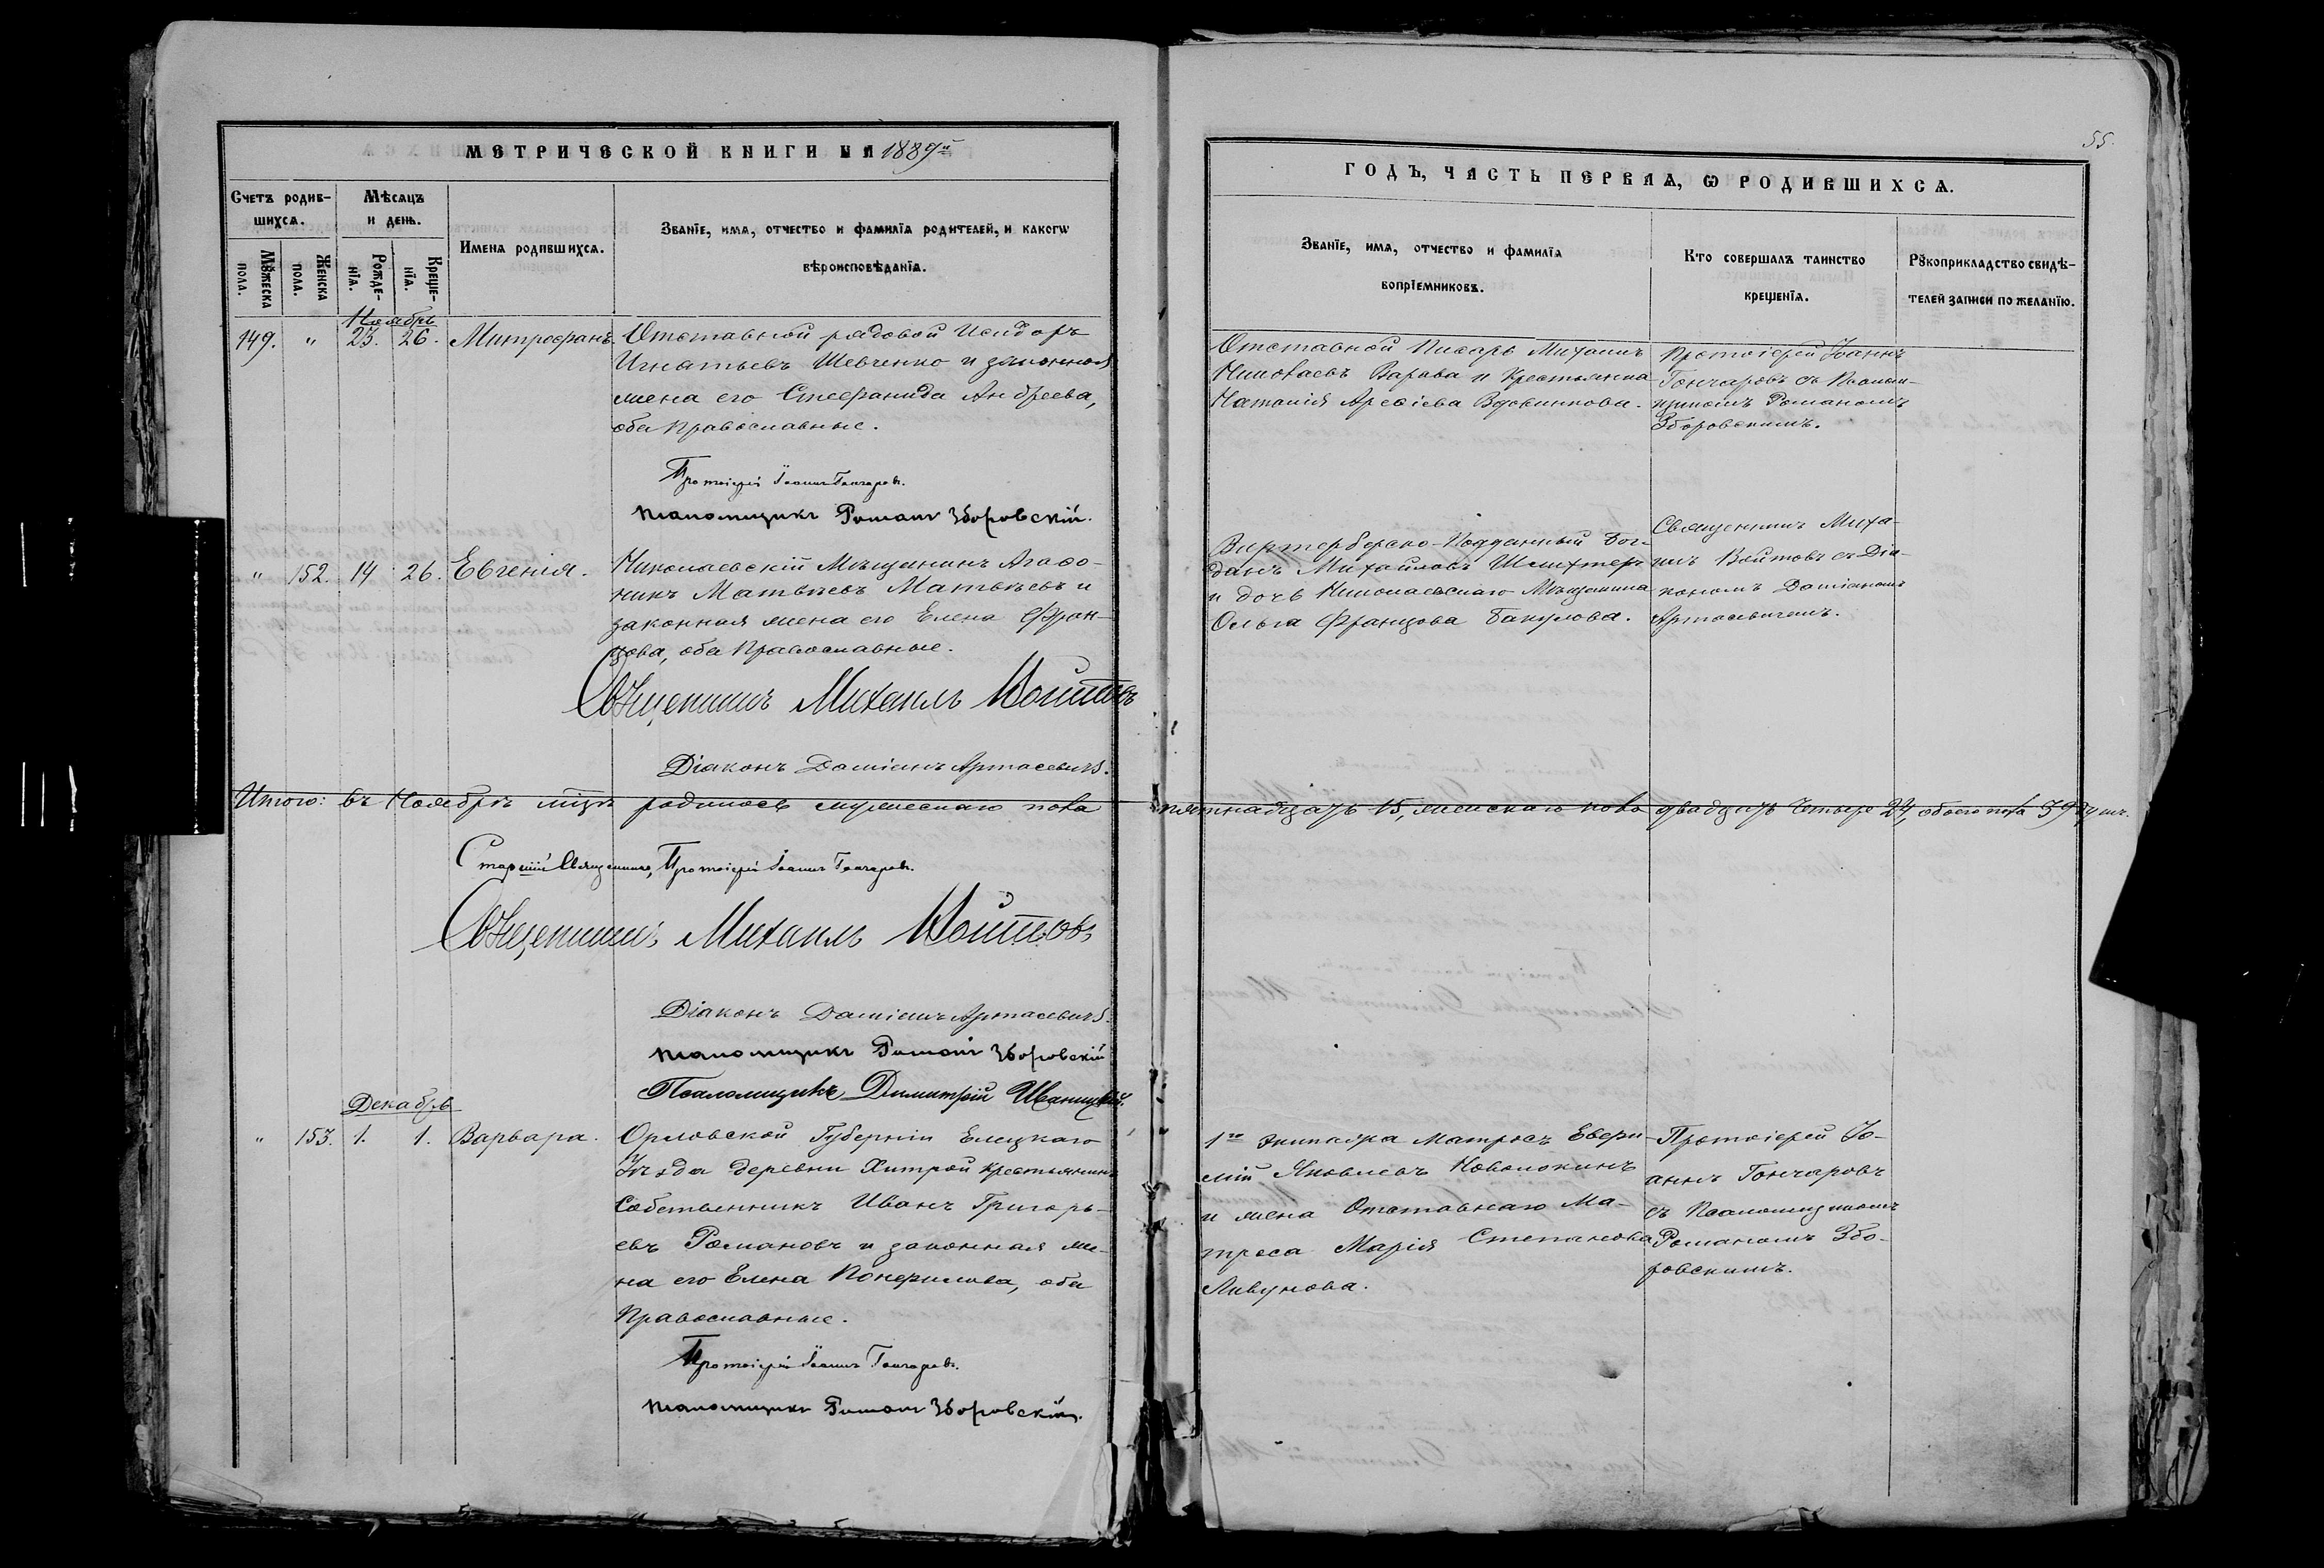 МЕТРИЧЕСКОЙ КНИГИ НА 1889й
Счетъ родив-
шихсѧ.
Мѣсѧцъ
и день.
Имена родившихсѧ.
Званїе, имѧ, отчество и фамилїѧ родителей, и какогѡ
вѣроисповѣданїѧ.
Мꙋжеска
пола.
Женска
пола.
Рожде-
нїѧ.
Креще-
нїѧ.
Ноябрь
149. " 23. 26. Митрофанъ.
Отставной рядовой Исидоръ
Игнатьевъ Шевченко и законная
жена его Стефанида Андреева,
оба Православные.
Протоіерей Іоаннъ Гончаровъ.
Псаломщикъ Романъ Зборовскій.
" 152. 14 26. Евгенія.
Николаевскій Мѣщанинъ Агафо-
никъ Матвѣевъ Матвѣевъ и
законная жена его Елена Фран-
цова, оба Православные.
Священникъ Михаилъ Войтовъ
Діаконъ Даміанъ Артасевичъ.
Итого: въ Ноябрѣ мцѣ родилось мужескаго пола
Старшій Священникъ, Протоіерей Іоаннъ Гончаровъ.
Священникъ Михаилъ Войтовъ
Діаконъ Даміанъ Артасевичъ.
Псаломщикъ Романъ Зборовскій
Псаломщикъ Димитрій Иваницкій.
Декабрь
" 153. 1. 1. Варвара.
Орловской Губерніи Елецкаго
Уѣзда деревни Хитрой крестьянинъ
Собственникъ Иванъ Григорь-
евъ Романовъ и законная же-
на его Елена, оба
Православные.
Протоіерей Іоаннъ Гончаровъ.
Псаломщикъ Романъ Зборовскій.
55.
ГОДЪ, ЧАСТЬ ПЕРВАѦ, Ѡ РОДИВШИХСѦ.
Званїе, имѧ, отчество и фамилїѧ
воспрїемниковъ.
Кто совершалъ таинство
крещенїѧ.
Рꙋкоприкладство свидѣ-
телей записи по желанїю.
Отставной Писарь Михаилъ
Николаевъ Варава и Крестьянка
Наталія Арсѳіева Вдовинкова.
Протоіерей Іоаннъ
Гончаровъ съ Псалом-
щикомъ Романомъ
Зборовскимъ.
Виртербергско-Подданный Бог-
данъ Михайловъ Шлихтеръ
и дочь Николаевскаго Мѣщанина
Ольга Францова Бакулова.
Священникъ Миха-
илъ Войтовъ съ Діа-
кономъ Даміаномъ
Артасевичемъ.
пятнадцать 15, женскаго пола двадцать четыре 24, обоего пола 39 душъ.
1го экипажа Матросъ Евфи-
мій Яковлевъ Новолокинъ
и жена Отставнаго Ма-
троса Марія Степанова
Ливунова.
Протоіерей Іо-
аннъ Гончаровъ
съ Псаломщикомъ
Романомъ Збо-
ровскимъ.